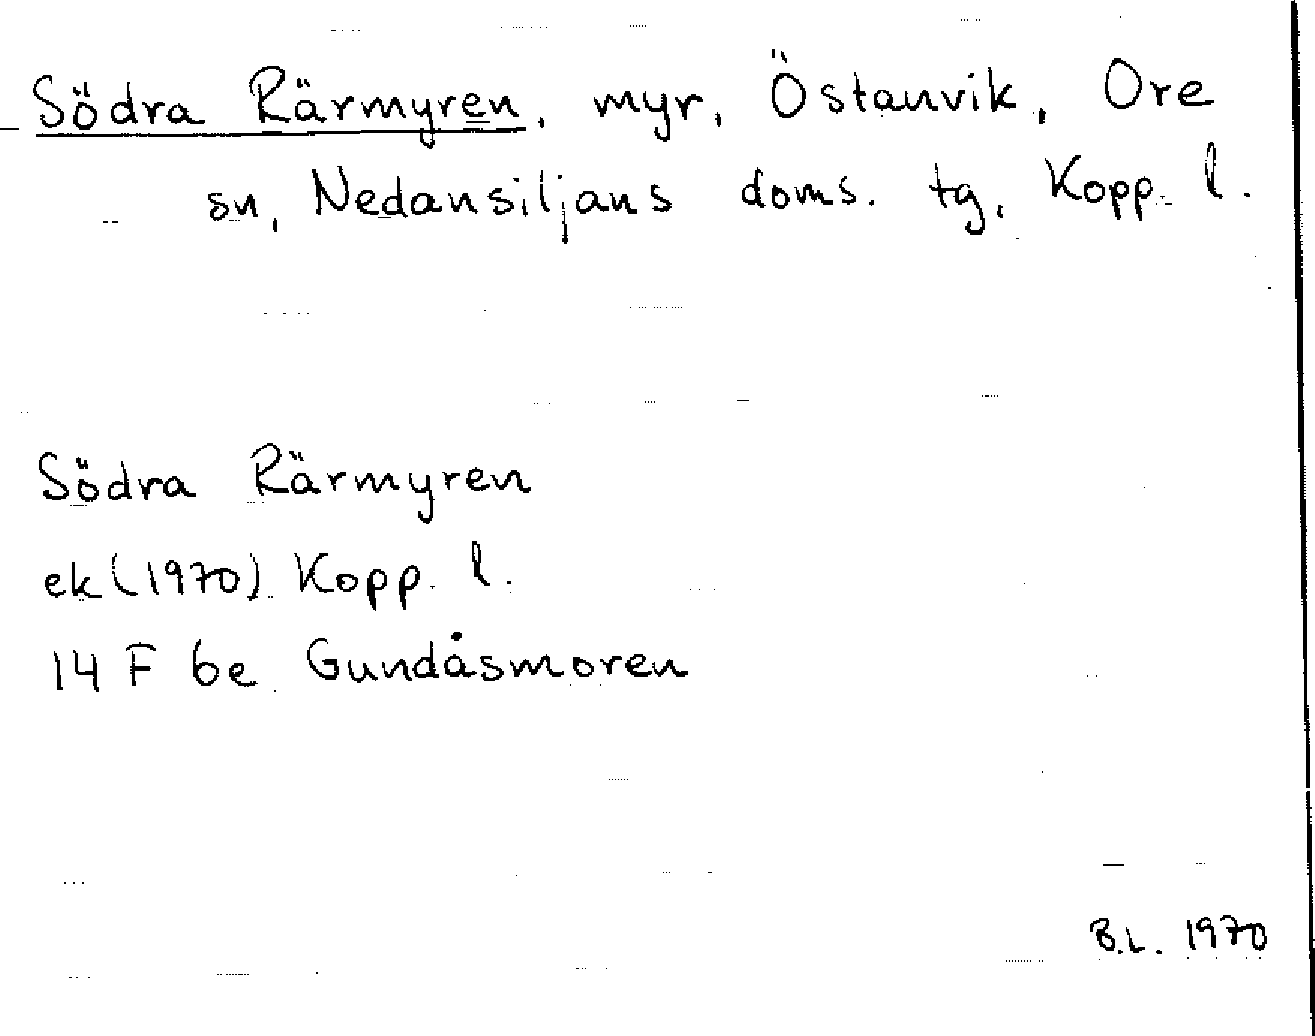 Södra Rärmyren, myr, Östanvik, Ore
sn, Nedansiljans doms. tg, Kopp. l.
Södra Rärmyren
ek (1970) Kopp. l.
14 F 6e Gundåsmoren
B.L. 1970